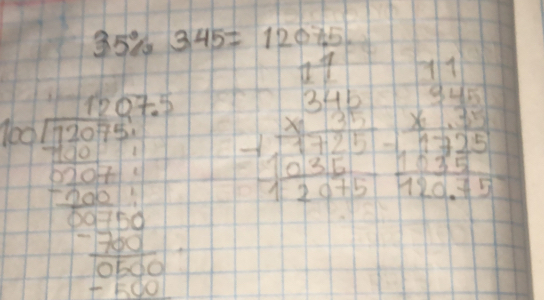 35% 345= 12075
1207.5
100 12075
100
0207
-200
00750
-700
0500
-500
11
345
x 35
+ 1725
1035
12075
11
345
x 35
+ 1725
1035
120.75